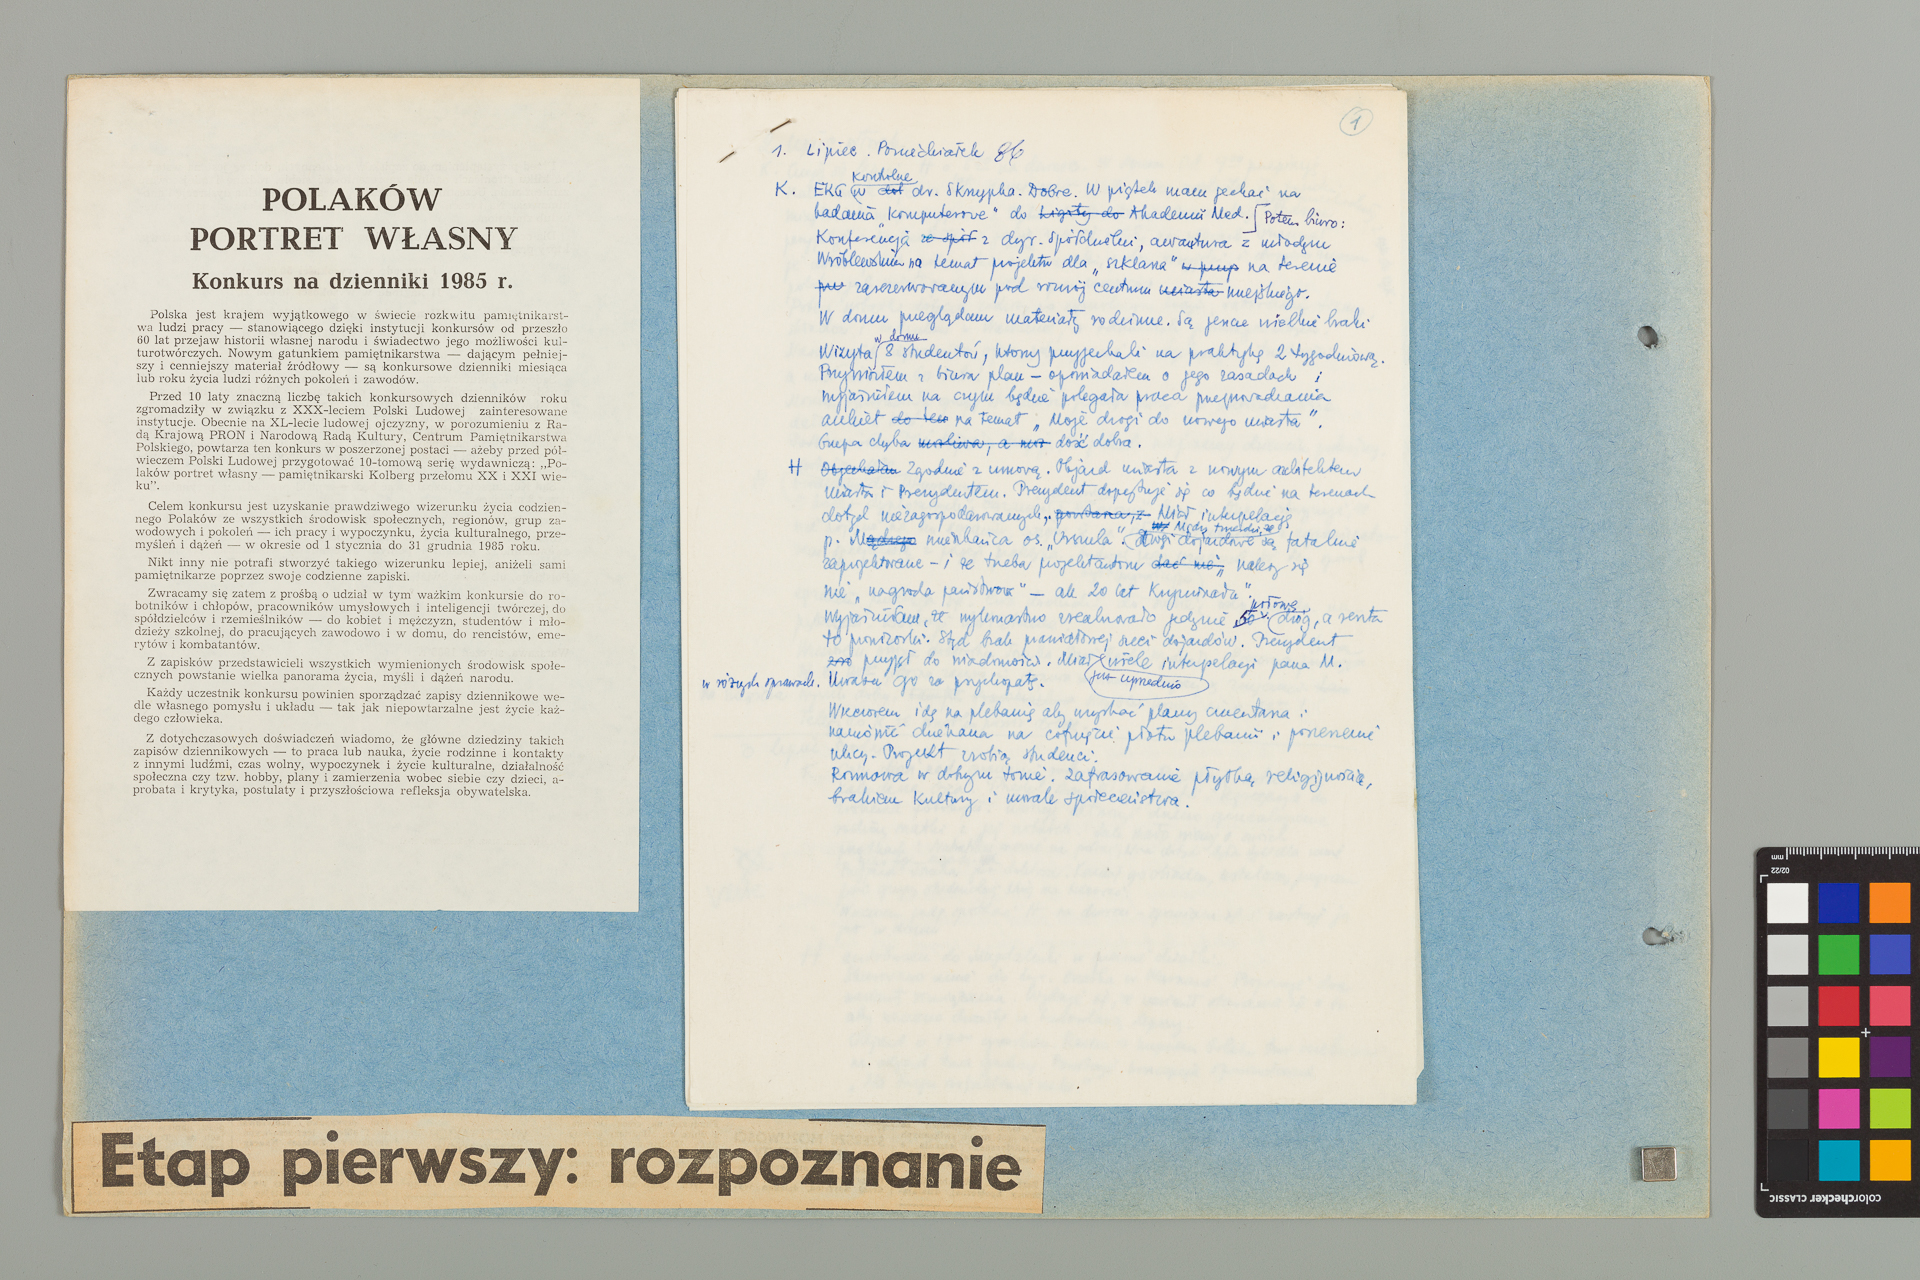 POLAKÓW
PORTRET WŁASNY
Konkurs na dzienniki 1985 r.
Polska jest krajem wyjątkowego w świecie rozkwitu pamiętnikarst-
wa ludzi pracy — stanowiącego dzięki instytucji konkursów od przeszło
60 lat przejaw historii własnej narodu i świadectwo jego możliwości kul-
turotwórczych. Nowym gatunkiem pamiętnikarstwa — dającym pełniej-
szy i cenniejszy materiał źródłowy — są konkursowe dzienniki miesiąca
lub roku życia ludzi różnych pokoleń i zawodów.
Przed 10 laty znaczną liczbę takich konkursowych dzienników roku
zgromadziły w związku z XXX-leciem Polski Ludowej zainteresowane
instytucje. Obecnie na XL-lecie ludowej ojczyzny, w porozumieniu z Ra-
dą Krajową PRON i Narodową Radą Kultury, Centrum Pamiętnikarstwa
Polskiego, powtarza ten konkurs w poszerzonej postaci — ażeby przed pół-
wieczem Polski Ludowej przygotować 10-tomową serię wydawniczą: „Po-
laków portret własny — pamiętnikarski Kolberg przełomu XX i XXI wie-
ku".
Celem konkursu jest uzyskanie prawdziwego wizerunku życia codzien-
nego Polaków ze wszystkich środowisk społecznych, regionów, grup za-
wodowych i pokoleń — ich pracy i wypoczynku, życia kulturalnego, prze-
myśleń i dążeń — w okresie od 1 stycznia do 31 grudnia 1985 roku.
Nikt inny nie potrafi stworzyć takiego wizerunku lepiej, aniżeli sami
pamiętnikarze poprzez swoje codzienne zapiski.
Zwracamy się zatem z prośbą o udział w tym ważkim konkursie do ro-
botników i chłopów, pracowników umysłowych i inteligencji twórczej, do
spółdzielców i rzemieślników — do kobiet i mężczyzn, studentów i mło-
dzieży szkolnej, do pracujących zawodowo i w domu, do rencistów, eme-
rytów i kombatantów.
Z zapisków przedstawicieli wszystkich wymienionych środowisk społe-
cznych powstanie wielka panorama życia, myśli i dążeń narodu.
Każdy uczestnik konkursu powinien sporządzać zapisy dziennikowe we-
dle własnego pomysłu i układu — tak jak niepowtarzalne jest życie każ-
dego człowieka.
Z dotychczasowych doświadczeń wiadomo, że główne dziedziny takich
zapisów dziennikowych — to praca lub nauka, życie rodzinne i kontakty
z innymi ludźmi, czas wolny, wypoczynek i życie kulturalne, działalność
społeczna czy tzw. hobby, plany i zamierzenia wobec siebie czy dzieci, a-
probata i krytyka, postulaty i przyszłościowa refleksja obywatelska.
Etap pierwszy: rozpoznanie
1
1. Lipiec. Poniedziałek 86
kontrolne
K. EKG dr. Skrzypka. Dobre. W piątek mam jechać na
badania "komputerowe" do Akademii Med. Potem biuro:
Konferencja z dyr. spółdzielni, awantura z młodym
Wróblewskim na temat projektu dla „szklana" na terenie
zarezerwowanym pod rozwój centrum miejskiego.
W domu przeglądam materiały rodzinne. Są jeszcze wielkie braki
w domu
Wizyta 8 studentów, którzy przyjechali na praktykę 2 tygodniową.
Przyniosłem z biura plan – opowiadałem o jego zasadach i
wyjaśniłem na czym będzie polegała praca przeprowadzania
ankiet na temat „Moje drogi do nowego miasta".
Grupa chyba dość dobra.
H Zgodnie z umową. Objazd miasta z nowym architektem
miasta i Prezydentem. Prezydent dopytuje się co będzie na terenach
dotąd niezagospodarowanych. Miał interpelację
p. mieszkańca os. „Urszula". drogi dojazdowe są fatalnie
zaprojektowane – i że trzeba projektantom należy się
nie „nagroda państwowa" – ale 20 lat Kryminału"
połowę
Wyjaśniłem, że wykonawstwo zrealizowało jedynie dróg, a reszta
to pomiłoski. Stąd brak prawidłowej sieci dojazdów. Prezydent
przyjął do wiadomości. Miał wiele interpelacji pana M.
już uprzednio
w różnych sprawach. Uważa go za psychopatę.
Wieczorem idę na plebanię aby uzyskać plany cmentarza i
namówić dziekana na cofnięcie płotu plebanii i poszerzenie
ulicy. Projekt zrobią studenci.
Rozmowa w dobrym tonie. Zafrasowanie płytką religijnością,
brakiem kultury i morale społeczeństwa.
mm
02/22
colorchecker CLASSIC